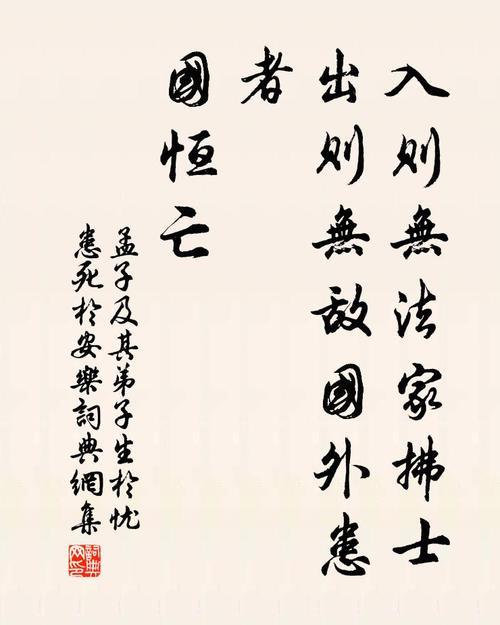 入則無法家拂士
出則無敵國外患
者
國恆亡
孟子及其弟子生於忧
患死於安樂詞典網集
詞典
网印